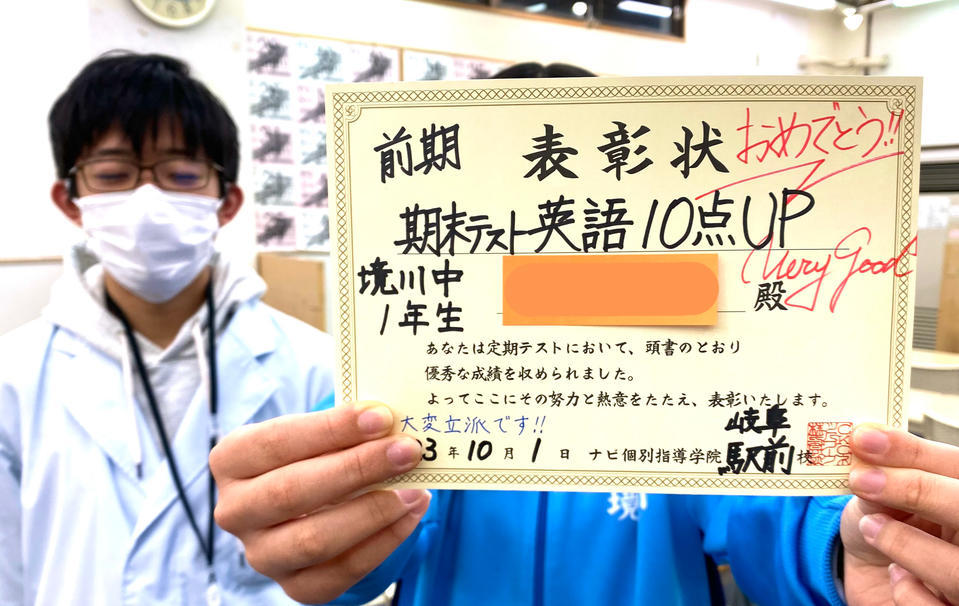 前期 表彰状 おめでとう!!
期末テスト英語10点UP
境川中
1年生 殿 Very Good
あなたは定期テストにおいて、頭書のとおり
優秀な成績を収められました。
よってここにその努力と熱意をたたえ、表彰いたします。
大変立派です!!
3年10月1日 ナビ個別指導学院 岐阜駅前校
境